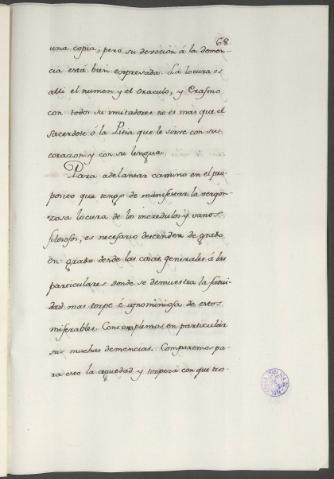 68
una copia, pero su devocion á la demen-
cia está bien expresada. La locura es
alli el numen y el oraculo, y Erasmo
con todos sus imitadores no es mas que el
sacerdote ó la Pitia que le sirve con su
corazon y con su lengua.
Para adelantar camino en el pro-
posito que tengo de manifestar la vergon-
zosa locura de los incredulos y vanos
filosofos, es necesario descender de grado
en grado desde las cosas generales á las
particulares donde se demuestra la fatui-
dad mas torpe é ignominiosa de estos
miserables. Contemplemos en particular
sus muchas demencias. Comparemos pa-
ra esto la ceguedad y torpeza con que tro-